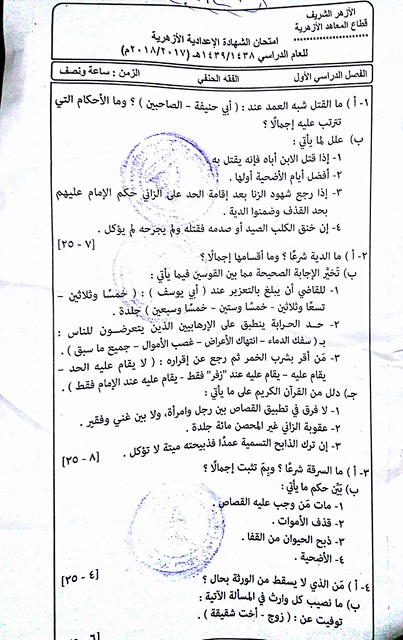 الأزهر الشريف
قطاع المعاهد الأزهرية
امتحان الشهادة الإعدادية الأزهرية
للعام الدراسي ١٤٣٩/١٤٣٨هـ (٢٠١٨/٢٠١٧م)
الفصل الدراسي الأول الفقه الحنفي الزمن : ساعة ونصف
١- أ ) ما القتل شبه العمد عند : ( أبي حنيفة - الصاحبين ) ؟ وما الأحكام التي
تترتب عليه إجمالًا ؟
ب) علل لما يأتي :
١- إذا قتل الابن أباه فإنه يقتل به
٢- أفضل أيام الأضحية أولها .
٣- إذا رجع شهود الزنا بعد إقامة الحد على الزاني حكم الإمام عليهم
بحد القذف وضمنوا الدية .
٤- إن خنق الكلب الصيد أو صدمه فقتله ولم يجرحه لم يؤكل .
[٧ - ٢٥]
٢- أ ) ما الدية شرعًا ؟ وما أقسامها إجمالًا ؟
ب) تخيَّر الإجابة الصحيحة مما بين القوسين فيما يأتي :
١- للقاضي أن يبلغ بالتعزير عند ( أبي يوسف ) : ( خمسًا وثلاثين -
تسعًا وثلاثين - خمسًا وستين - خمسًا وسبعين ) جلدة .
٢- حـد الحرابة ينطبق على الإرهابيين الذين يتعرضـون للناس :
بـ ( سفك الدماء - انتهاك الأعراض - غصب الأموال - جميع ما سبق ) .
٣- مَن أقر بشرب الخمر ثم رجع عن إقراره : ( لا يقام عليه الحد -
يقام عليه - يقام عليه عند "زفر" فقط - يقام عليه عند الإمام فقط ) .
جـ) دلل من القرآن الكريم على ما يأتي :
١- لا فرق في تطبيق القصاص بين رجل وامرأة، ولا بين غني وفقير .
٢- عقوبة الزاني غير المحصن مائة جلدة .
٣- إن ترك الذابح التسمية عمدًا فذبيحته ميتة لا تؤكل .
[٨ - ٢٥]
٣- أ ) ما السرقة شرعًا ؟ وبِمَ تثبت إجمالًا ؟
ب) بَيِّن حكم ما يأتي :
١- مات مَن وجب عليه القصاص .
٢- قذف الأموات .
٣- ذبح الحيوان من القفا .
٤- الأضحية .
[٤ - ٢٥]
٤- أ ) مَن الذي لا يسقط من الورثة بحال ؟
ب) ما نصيب كل وارث في المسألة الآتية :
توفيت عن : ( زوج - أخت شقيقة ) .